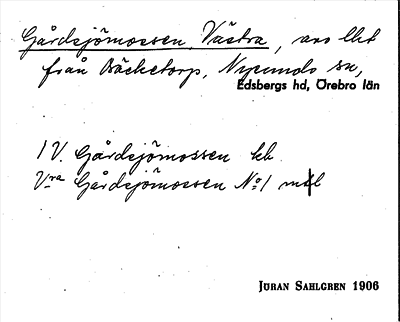 Gårdsjömossen, Västra, avs lht
från Bäcketorp, Nysunds sn,
Edsbergs hd, Örebro län
1 V. Gårdsjömossen hb
Vra Gårdsjömossen No 1
JÖRAN SAHLGREN 1906